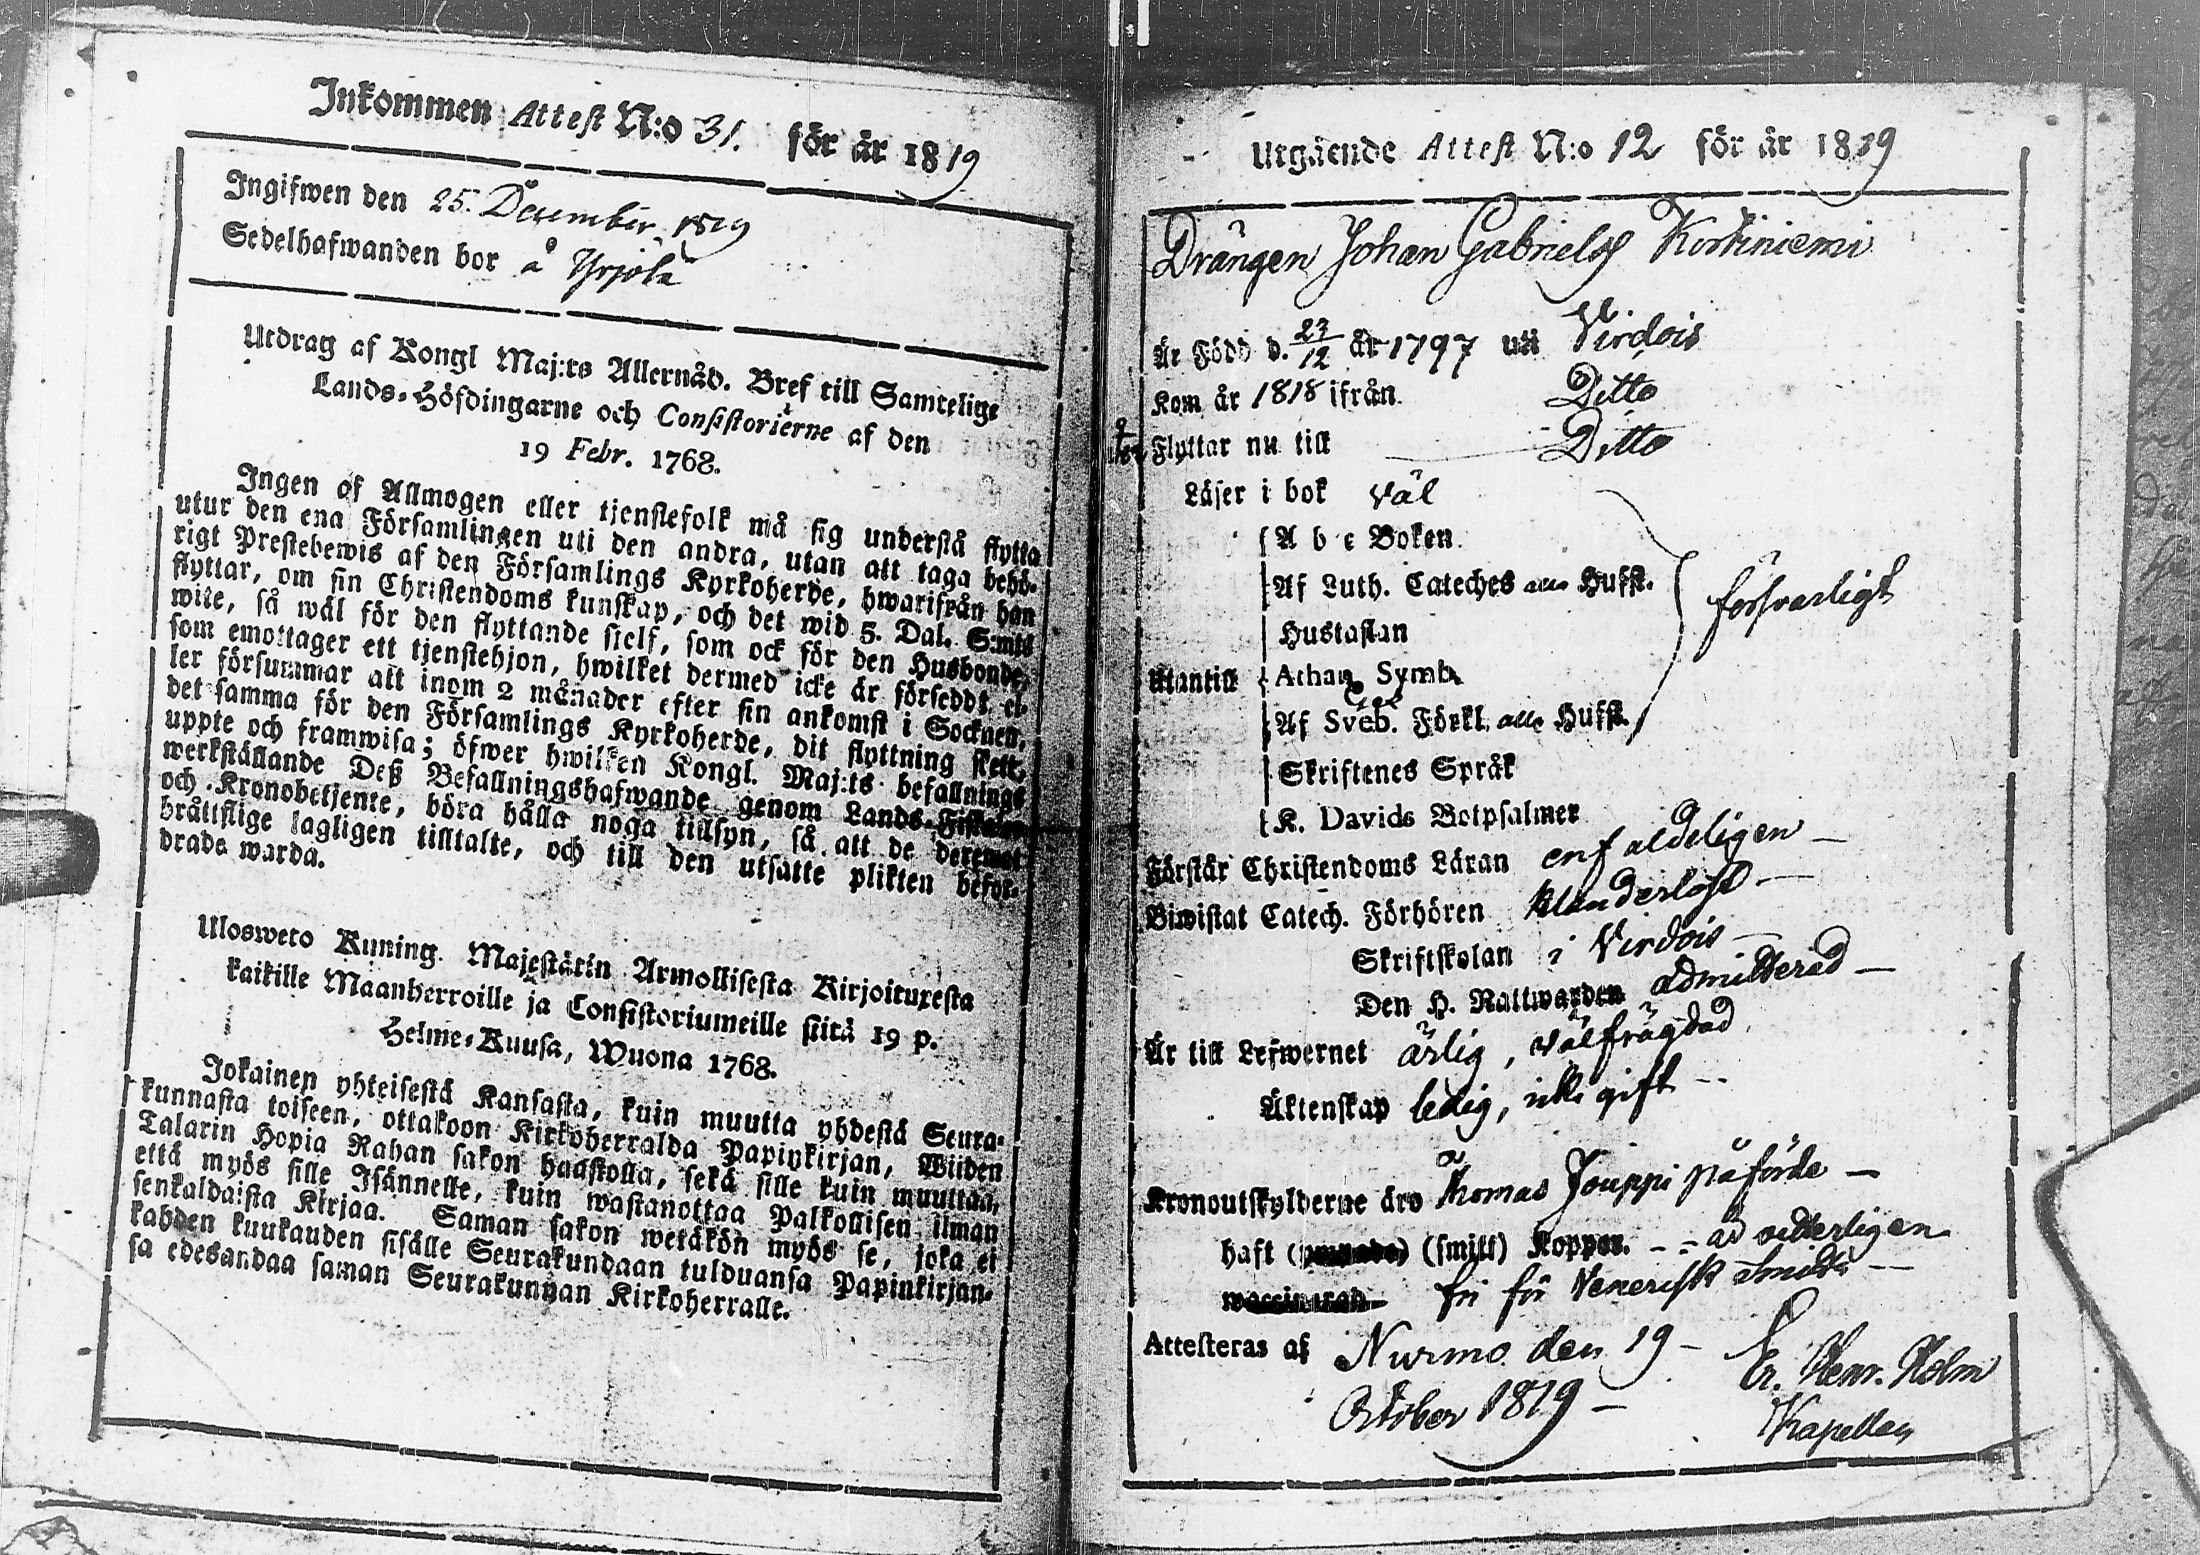 Inkommen Attest N:o 31. för år 1819
Ingifwen den 25. December 1819
Sedelhafwanden bor å Yrjölä
Utdrag af Kongl Maj:ts Allernåd. Bref till Samtelige
Lands-Höfdingarne och Consistorierne af den
19 Febr. 1768.
Ingen af Allmogen eller tjenstefolk må sig understå flytta
utur den ena Församlingen uti den andra, utan att taga behö-
rigt Prestebewis af den Församlings Kyrkoherde, hwarifrån han
flyttar, om sin Christendoms kunskap, och det wid 5. Dal. S:mts
wite, så wäl för den flyttande sielf, som ock för den Husbonde,
som emottager ett tjenstehjon, hwilket dermed icke är förseddt, el-
ler försummar att inom 2 månader efter sin ankomst i Socknen,
det samma för den Församlings Kyrkoherde, dit flyttning skett,
uppte och framwisa; öfwer hwilken Kongl. Maj:ts befallnings
werkställande Deß Befallningshafwande genom Lands-Fiskaler
och Kronobetjente, böra hålla noga tillsyn, så att de deremot
bråttslige lagligen tilltalte, och till den utsatte plikten befor-
drade warda.
Ulosweto Kuning. Majestätin Armollisesta Kirjoituxesta
kaikille Maanherroille ja Consistoriumeille siitä 19 p.
Helme-Kuusa, Wuona 1768.
Jokainen yhteisestä Kansasta, kuin muutta yhdestä Seura-
kunnasta toiseen, ottakoon Kirkoherralda Papinkirjan, Wiiden
Talarin Hopia Rahan sakon haastolla, sekä sille kuin muuttaa,
että myös sille Isännelle, kuin wastanottaa Palkollisen ilman
senkaldaista Kirjaa. Saman sakon wetäkön myös se, joka ei
kahden kuukauden sisälle Seurakundaan tulduansa Papinkirjan-
sa edesandaa saman Seurakunnan Kirkoherralle.
Utgående Attest N:o 12 för år 1819
Drängen Johan Gabrielss Kortiniemi
Är Född d. 23/12 år 1797 uti Virdois
Kom år 1818 ifrån Ditto
Flyttar nu till Ditto
Läser i bok väl
A b c Boken
Af Luth. Cateches alla Hufst.
Hustaflan
försvarligt
Utantill Athan. Symb.
Af Sveb. Förkl. alla Hufst.
Skriftenes Språk
K. Davids Botpsalmer
Förstår Christendoms Läran enfaldeligen
Biwistat Catech. Förhören klanderlöst
Skriftskolan i Virdois
Den H. Nattwarden admitterad
Är till Lefwernet ärlig, välfrägdad
Äktenskap ledig, icke gift
Kronoutskylderne äro å Thomas Jouppi påförde
haft (smitt) Koppor.
fri för Venerisk Smitta
Attesteras af Nurmo den 19
October 1819
Er. Henr. Holm
Kapellan